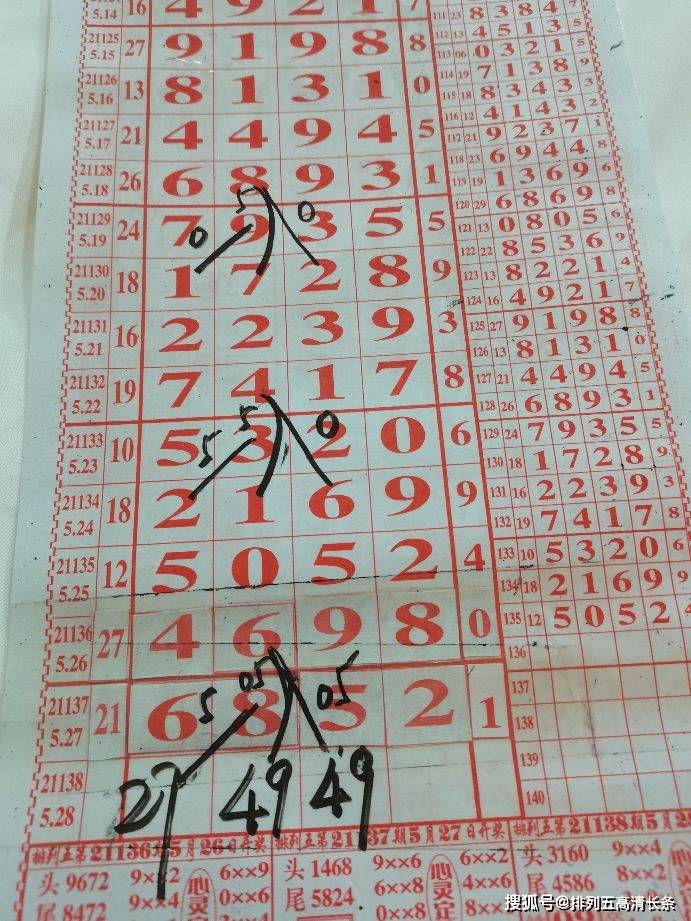 5.14 16 4 9 2 1 7
21125 5.15 27 9 1 9 8 8
21126 5.16 13 8 1 3 1 0
21127 5.17 21 4 4 9 4 5
21128 5.18 26 6 8 9 3 1
5 0
21129 5.19 24 7 9 3 5 5
0
21130 5.20 18 1 7 2 8 9
21131 5.21 16 2 2 3 9 3
21132 5.22 19 7 4 1 7 8
5 0
21133 5.23 10 5 3 2 0 6
5
21134 5.24 18 2 1 6 9 9
21135 5.25 12 5 0 5 2 4
21136 5.26 27 4 6 9 8 0
05 05
21137 5.27 21 6 8 5 2 1
5
21138 5.28 27 49 49
111 23 8 3 8 4 7
112 13 4 5 1 3 5
113 06 0 3 2 1 5
114 19 7 1 3 8 9
115 18 8 3 4 3 3
116 12 4 1 4 3 2
117 21 9 2 3 7 1
118 23 6 9 4 4 8
119 19 1 3 6 9 6
120 29 6 8 6 9 8
121 13 0 8 0 5 6
122 22 8 5 3 6 9
123 13 8 2 2 1 4
124 16 4 9 2 1 7
125 27 9 1 9 8 8
126 13 8 1 3 1 0
127 21 4 4 9 4 5
128 26 6 8 9 3 1
129 24 7 9 3 5 5
130 18 1 7 2 8 9
131 16 2 2 3 9 3
132 19 7 4 1 7 8
133 10 5 3 2 0 6
134 18 2 1 6 9 9
135 12 5 0 5 2 4
136
137
138
139
140
排列五第21136期5月26日开奖
头 9672 6××9
尾 8472 9××4 0××6
心灵
排列五第21137期5月27日开奖
头 1468 9××6 6××2
尾 5824 6××8 4××6
心灵
排列五第21138期5月28
头 3160 9××4
尾 4586 8××2
心灵
搜狐号@排列五高清长条